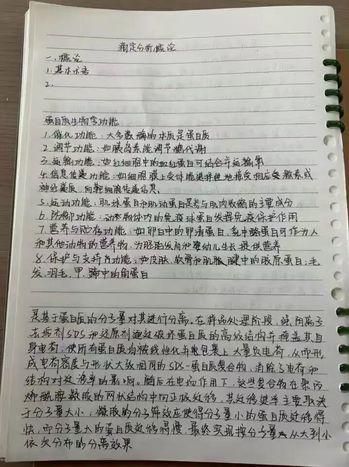 概论
一、概论
1. 基本水
2.
蛋白质生物学功能
1. 催化功能：大多数酶的本质是蛋白质
2. 调节功能：如胰岛素能调节糖代谢
3. 运输功能：如红细胞中的血红蛋白可结合并运输氧
4. 信息传递功能：如细胞膜上受体能选择性地接受相应受激素或
神经递质，向靶细胞传递信息。
5. 运动功能：肌球蛋白和肌动蛋白是参与肌肉收缩的主要成分
6. 防御功能：动物体内的免疫球蛋白发挥免疫保护作用
7. 营养与贮存功能：如卵白中的卵清蛋白、乳中酪蛋白可作为人
和其他动物的营养物，为胚胎发育和婴幼儿生长提供营养
8. 保护与支持作功能：如皮肤、软骨和肌腱中的胶原蛋白；毛
发、羽毛、甲、蹄中的角蛋白
是基于蛋白质的分子量对其进行分离。在样品处理阶段，强阴离子
去污剂SDS和还原剂破坏蛋白质的高级结构并掩盖其自
身电荷，使所有蛋白质均被线性化并包裹上大量负电荷，从而形
成电荷密度与形状大致相同的SDS-蛋白质复合物，消除了电荷和
结构对迁移率的影响。随后在电场作用下，这些复合物在聚丙
烯酰胺凝胶的网状结构中向正极迁移，其迁移速率主要取决
于分子量大小，凝胶的分子筛效应使得分子量小的蛋白质迁移得
快，而分子量大的蛋白质迁移得慢，最终实现按分子量从大到小
依次分布的分离效果